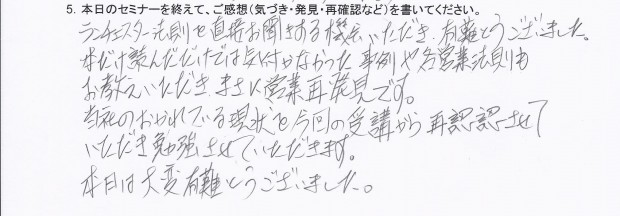 5. 本日のセミナーを終えて、ご感想（気づき・発見・再確認など）を書いてください。
ランチェスター法則を直接お聞きする機会いただき、有難とうございました。
本だけ読んだだけでは気付かなかった事例や各営業法則も
お教えいただきまさに営業再発見です。
当社のおかれている現状を今回の受講から再認認させて
いただき勉強させていただきます。
本日は大変有難とうございました。